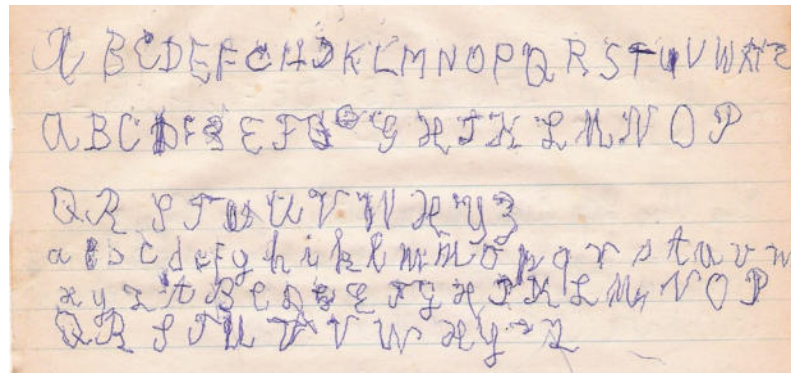 A B C D E F G H J K L M N O P Q R S T U V W X Y Z
A B C D E F G H I K L M N O P
Q R S T U V W X Y Z
a b c d e f g h i k l m n o p q r s t u v w
x y z A B C D E F G H I K L M N O P
Q R S T U V W X Y Z